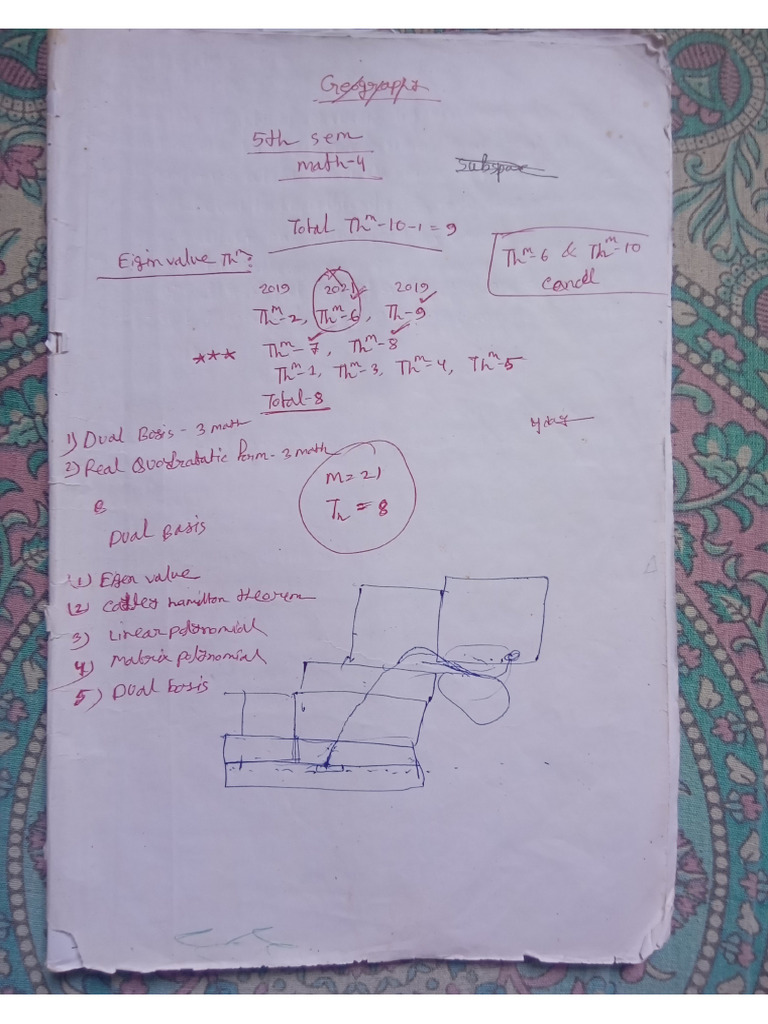 Geography
5th sem
math-4
Subspac
Total Thm-10-1=9
Eigin value Thm:
Thm-6 & Thm-10
Cancel
2019 2021 2019
Thm-2, Thm-6, Th-9
*** Thm-7, Thm-8
Thm-1, Thm-3, Thm-4, Thm-5
Total-8
1) Dual Basis - 3 math
2) Real Quadratatic Form - 3 math
M=21
Th = 8
B
Dual Basis
1) Eigen value
2) Calley hamilton theorem
3) Linear polynomial
4) Matrix polnomial
5) Dual basis